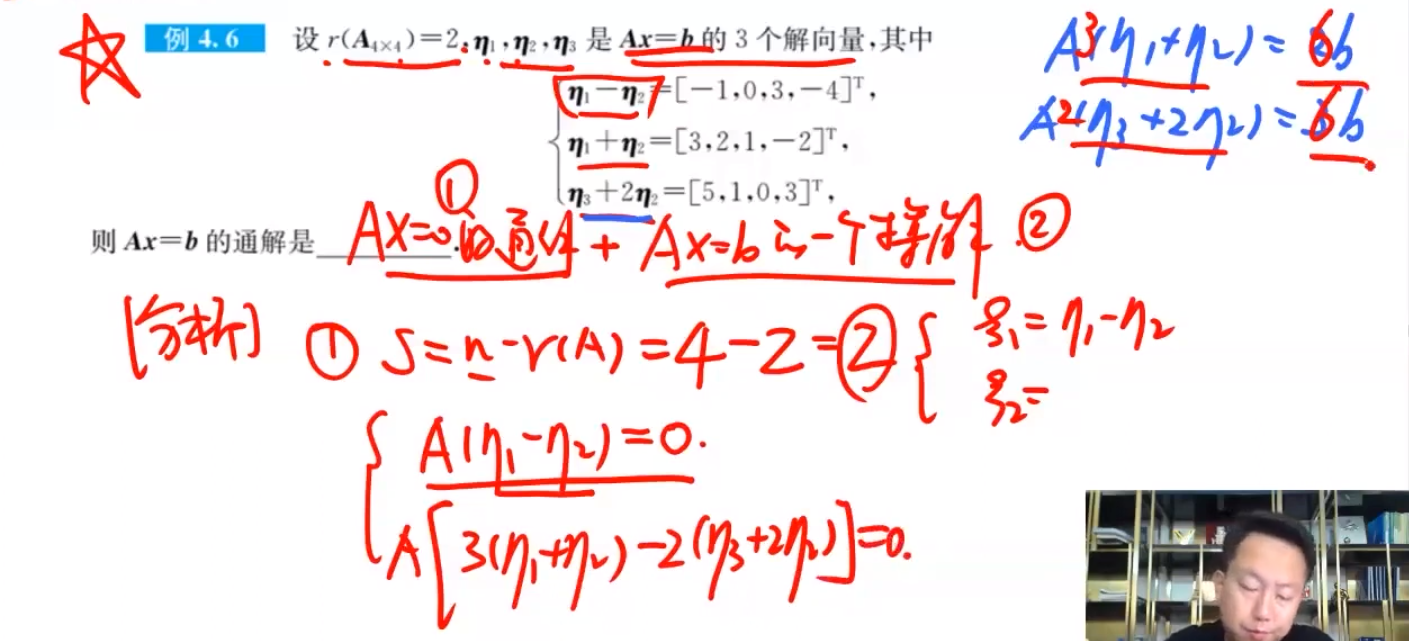 例 4.6 设 r(A₄ₓ₄)=2, η₁,η₂,η₃ 是 Ax=b 的 3 个解向量,其中
η₁-η₂=[-1,0,3,-4]ᵀ,
η₁+η₂=[3,2,1,-2]ᵀ,
η₃+2η₂=[5,1,0,3]ᵀ,
A3(η₁+η₂)=6b
A2(η₃+2η₂)=6b
则 Ax=b 的通解是________.
① Ax=0的通解 + Ax=b的一个特解 ②
[分析] ① S=n-r(A)=4-2=② { ξ₁=η₁-η₂
ξ₂=
{ A(η₁-η₂)=0.
A[3(η₁+η₂)-2(η₃+2η₂)]=0.